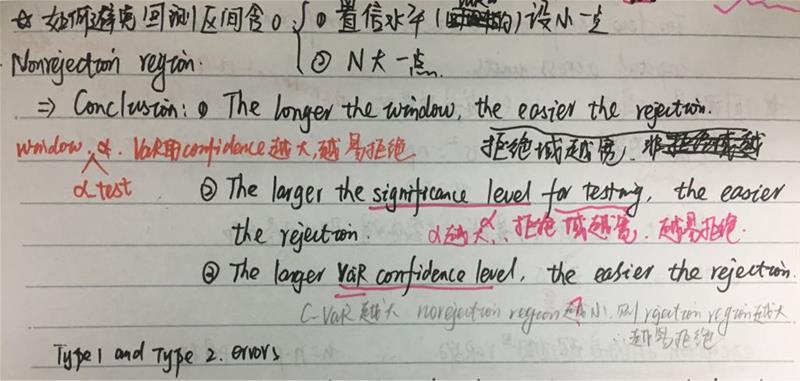 ☆ 如何避免回测区间含0 { ① 置信水平(VaR的)设小一点
Nonrejection region. ② N大一点.
⇒ Conclusion: ① The longer the window, the easier the rejection.
window, α. VaR用confidence越大,越易拒绝 拒绝域越宽,
α test ② The larger the significance level for testing, the easier
the rejection. α越大, 拒绝域越宽. 越易拒绝.
③ The larger VaR confidence level, the easier the rejection.
C-VaR越大 norejection region越小, 则rejection region越大
∴越易拒绝
Type 1 and Type 2. errors